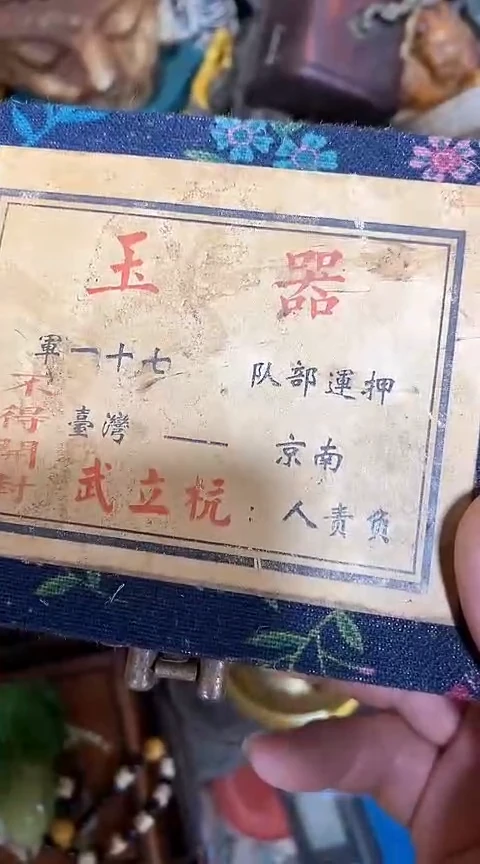 玉器
押運部队 七十一軍
南京 —— 臺灣
負責人：武立杭
不得開封